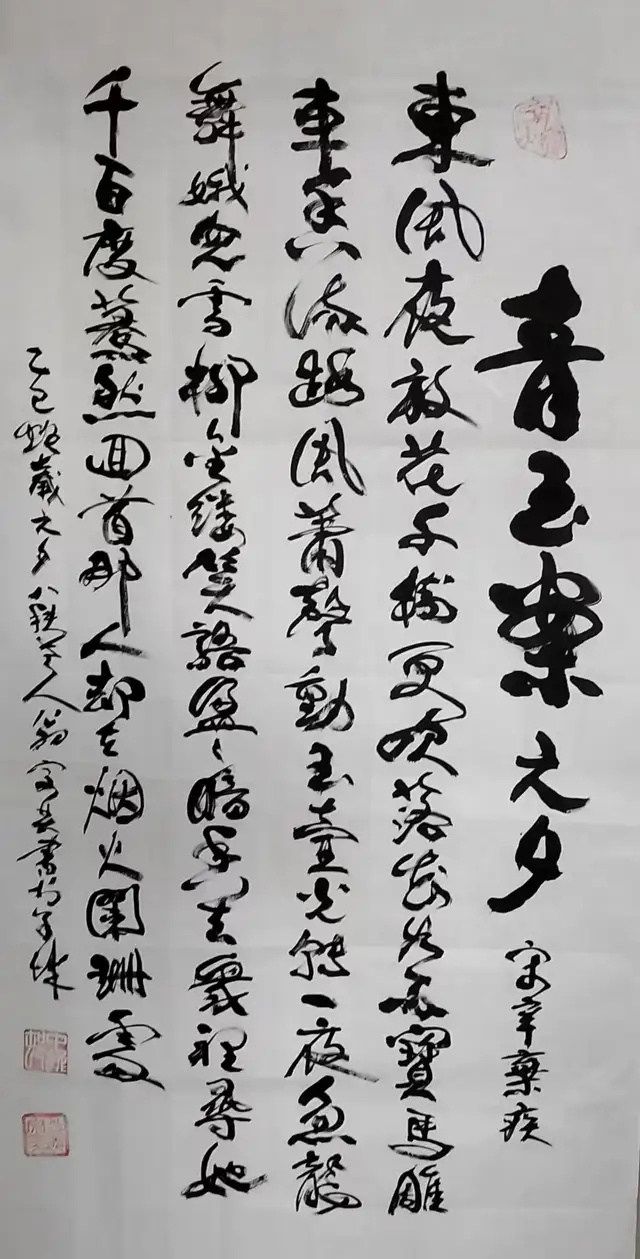 青玉案 元夕 宋辛棄疾
東風夜放花千樹更吹落星如雨寶馬雕
車香滿路鳳蕭聲動玉壺光轉一夜魚龍
舞娥兒雪柳金縷笑語盈々暗香去衆裡尋她
千百度驀然回首那人却在烟火闌珊處
乙巳蛇歲元夕八人翁書於羊城